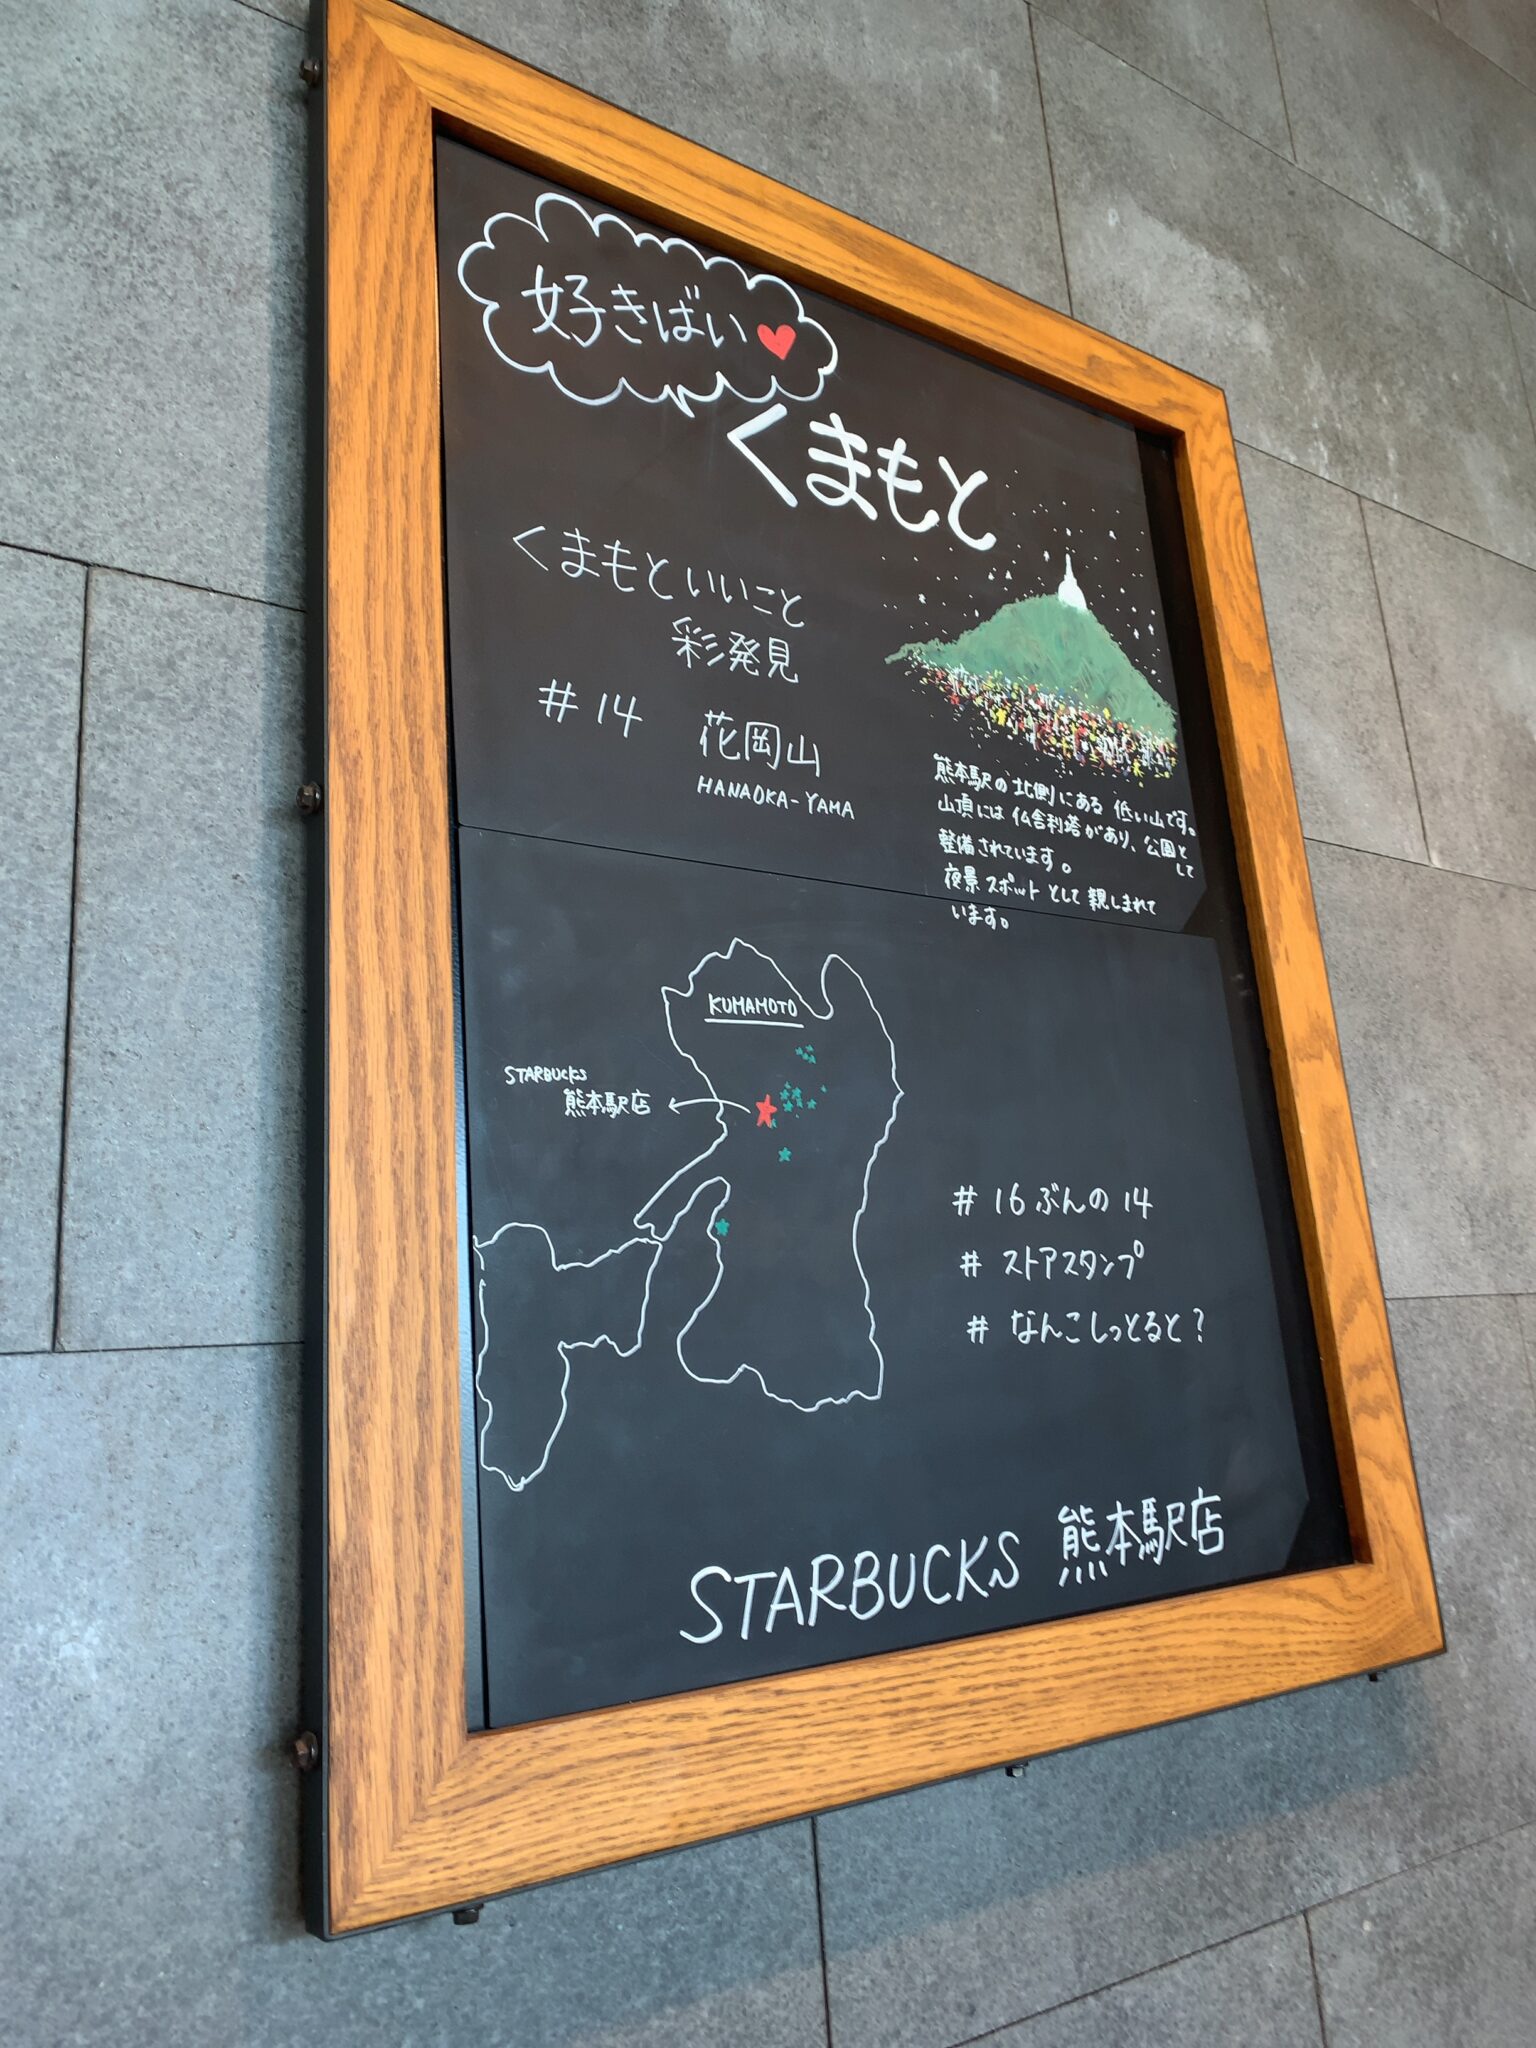 好きばい
くまもと
くまもといいこと
彩発見
#14 花岡山
HANAOKA-YAMA
熊本駅の北側にある 低い山です。
山頂には仏舎利塔があり、公園として
整備されています。
夜景スポットとして親しまれて
います。
KUMAMOTO
STARBUCKS
熊本駅店
# 16ぶんの14
# ストアスタンプ
# なんこしっとると?
STARBUCKS 熊本駅店